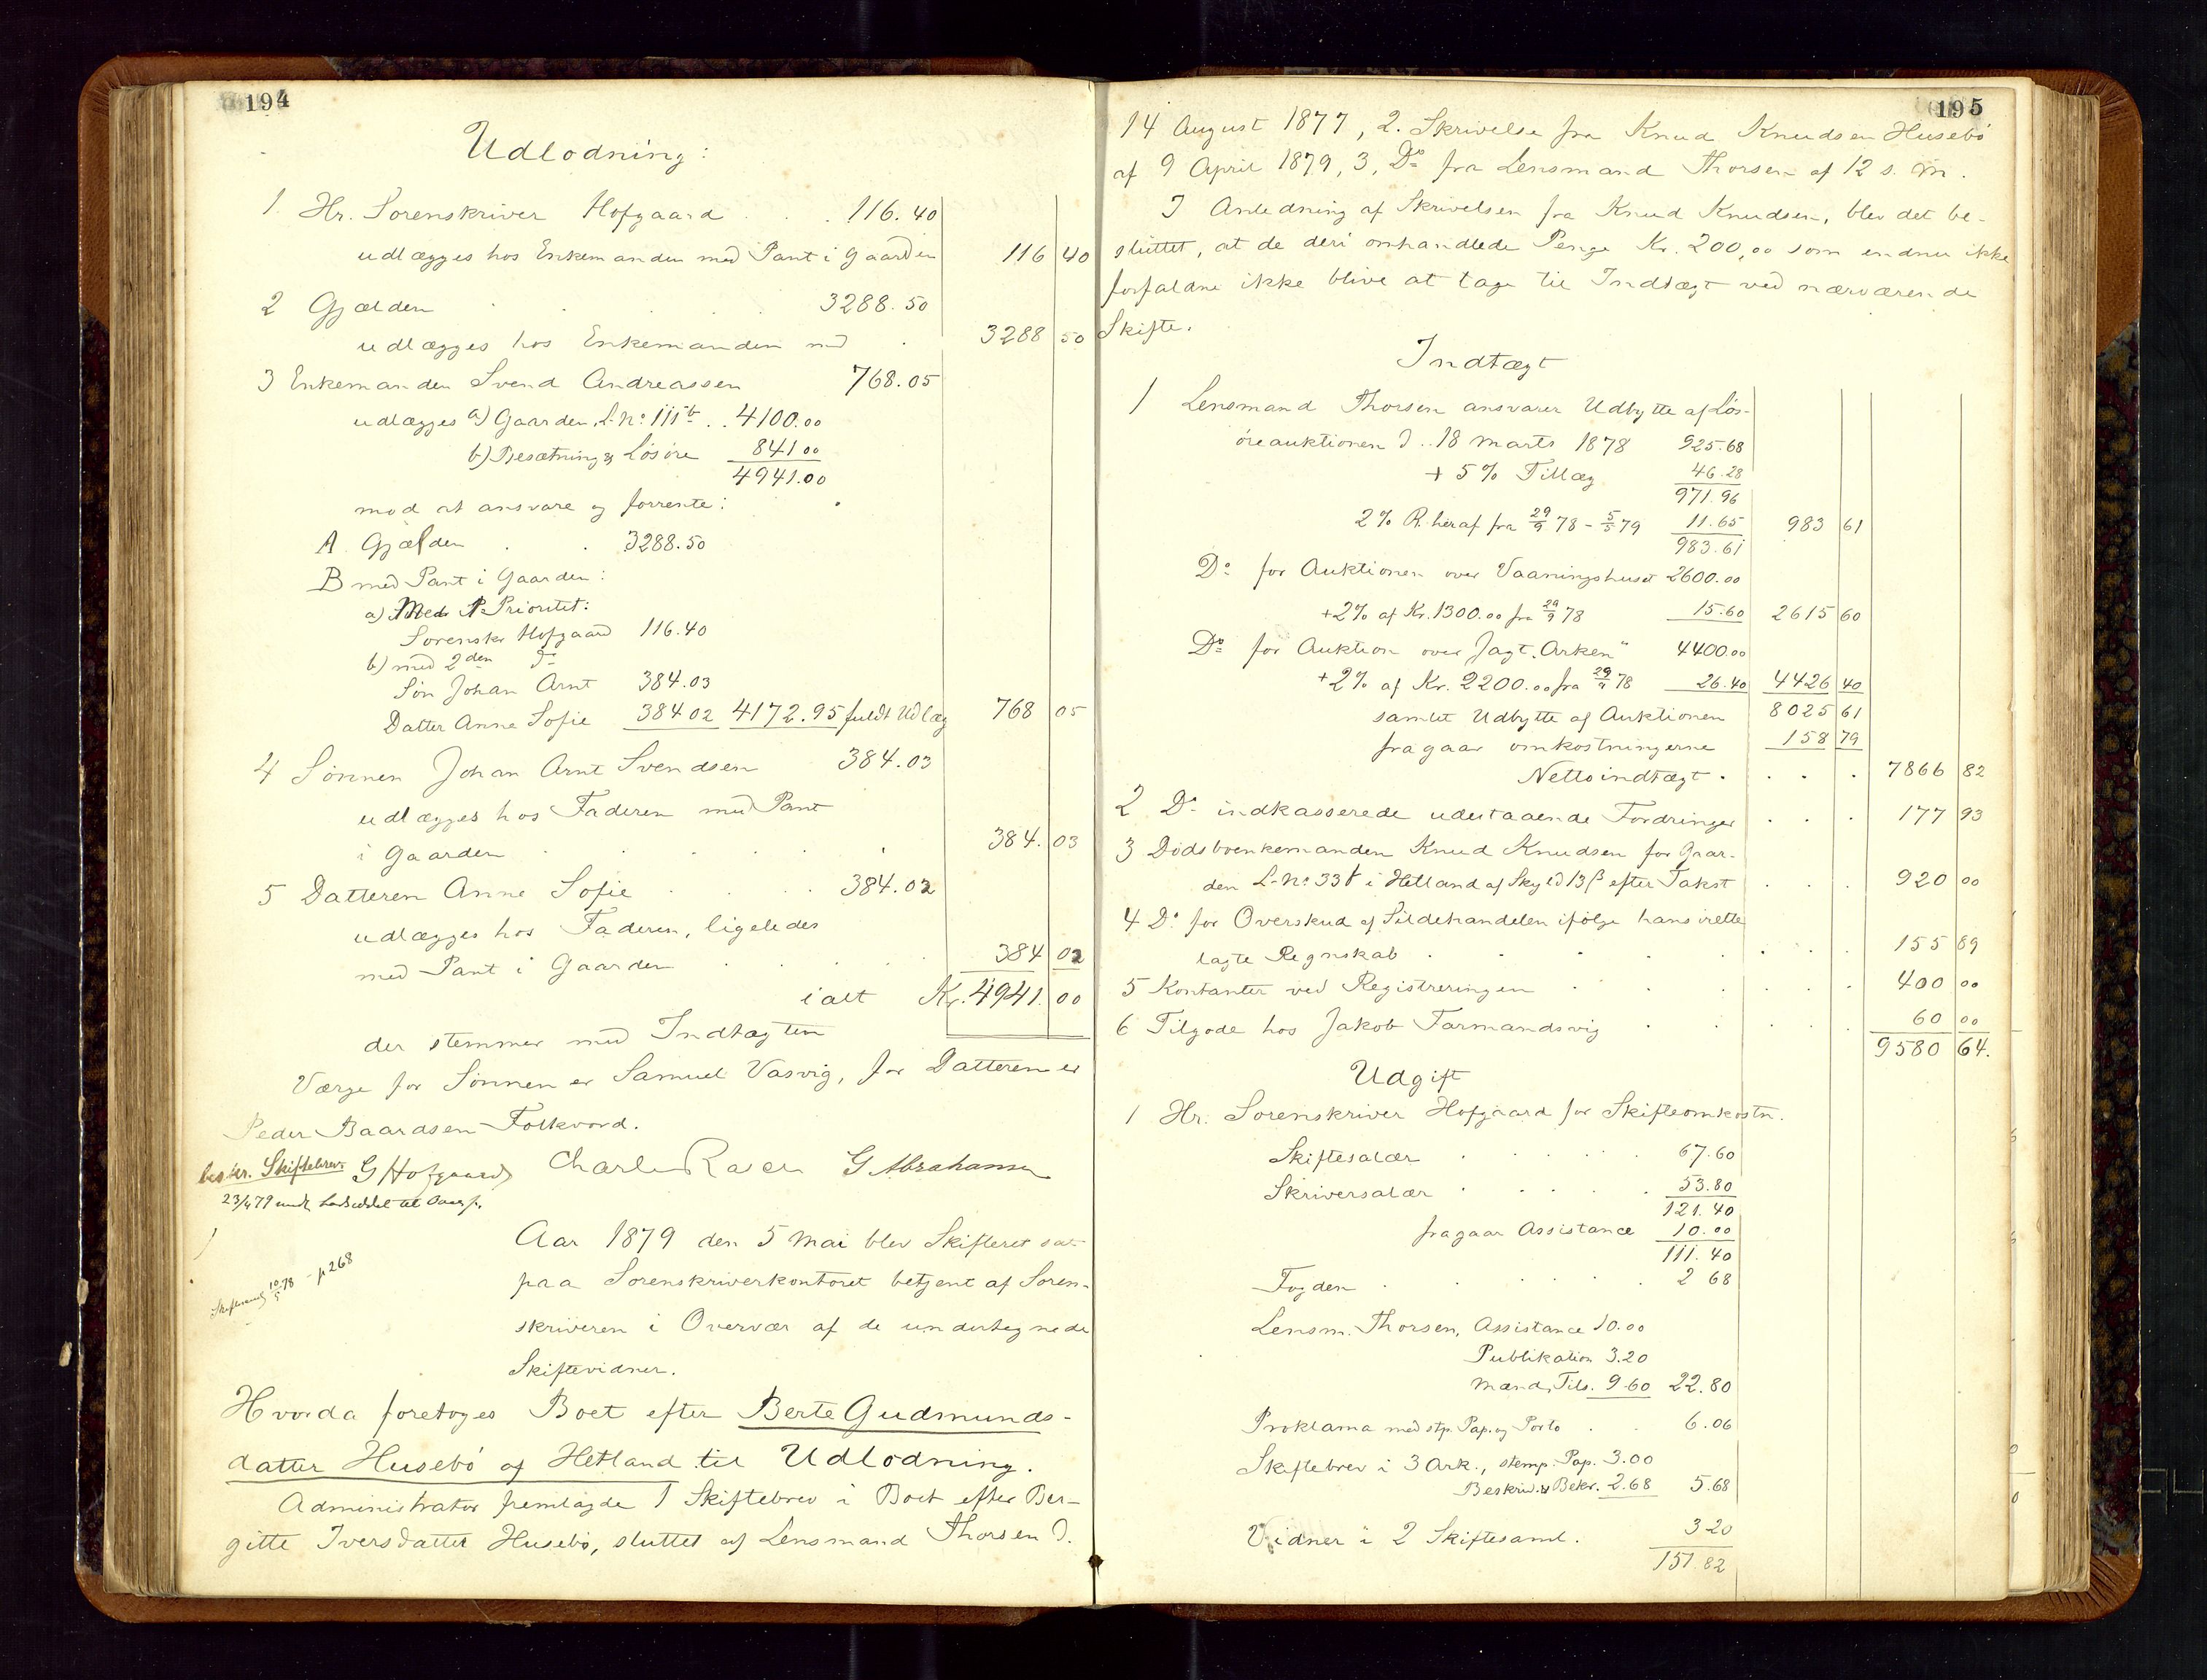 194
Udlodning:
1. Hr. Sorenskriver Hofgaard . . . 116.40
udlægges hos Enkemanden med Pant i Gaarden 116 40
2 Gjælden . . . 3288.50
udlægges hos Enkemanden med . 3288 50
3 Enkemanden Svend Andreassen 768.05
udlægges a) Gaarden, L-No: 111b . . 4100.00
b) Besætning & Løsøre 841 00
4941.00
mod at ansvare og forrente:
A. Gjælden . . 3288.50
B med Pant i Gaarden:
a) Med 1. Prioritet:
Sorenskr Hofgaard 116.40
b) med 2den do
Søn Johan Arnt 384.03
Datter Anne Sofie 384 02 4172.95 fuldt Udlæg 768 05
4 Sønnen Johan Arnt Svendsen 384.03
udlægges hos Faderen med Pant
i Gaarden . . . . . . 384. 03
5 Datteren Anne Sofie . . . . 384.02
udlægges hos Faderen, ligeledes
med Pant i Gaarden . . . . . 384 02
ialt Kr. 4941. 00
der stemmer med Indtægten
Værge for Sønnen er Samuel Vasvig, for Datteren er
Peder Baardsen Folkvord.
beskr. Skiftebrev G Hofgaard Charles Raven G Abrahamsen
23/4 79 med
Aar 1879 den 5 Mai blev Skifteret sat
paa Sorenskriverkontoret betjent af Soren-
skriveren i Overvær af de undertegnede
Skiftevidner.
10/5 78 - p 268
Hvorda foretoges Boet efter Berte Gudmunds-
datter Husebø af Hetland til Udlodning.
Administrator fremlagde 1 Skiftebrev i Boet efter Ber-
gitte Iversdatter Husebø, sluttet af Lensmand Thorsen d.
195
14 August 1877, 2. Skrivelse fra Knud Knudsen Husebø
af 9 April 1879, 3, Do fra Lensmand Thorsen af 12 s. M.
I Anledning af Skrivelsen fra Knud Knudsen, blev det be-
sluttet, at de deri omhandlede Penge Kr. 200,00 som endnu ikke
forfaldne ikke blive at tage til Indtægt ved nærværende
Skifte.
Indtægt
1 Lensmand Thorsen ansvarer Udbytte af Løs-
øreauktionen d. 18 Marts 1878 925.68
+ 5 % Tillæg 46.28
971.96
2 % R. heraf fra 29/9 78 - 5/5 79 11.65 983 61
983.61
Do for Auktionen over Vaaningshuset 2600.00
+2% af Kr. 1300.00 fra 29/9 78 15.60 2615 60
Do for Auktion over Jagt „Arken“ 4400.00
+2% af Kr. 2200.00 fra 29/9 78 26.40 4426 40
samlet Udbytte af Auktionen 8025 61
fragaar omkostningerne 158 79
Nettoindtægt . . . . 7866 82
2 Do indkasserede udestaaende Fordringer . . . 177 93
3 Dødsboenkemanden Knud Knudsen for Gaar-
den L-No: 33b i Hetland af Skyld 13 β efter Takst . . . 920 00
4 Do for Overskud af Sildehandelen ifølge hans irette
lagte Regnskab . . . . . . . . 155 89
5 Kontanter ved Registreringen . . . . . . 400 00
6 Tilgode hos Jakob Tarmandsvig . . . . . 60 00
9580 64.
Udgift
1 Hr. Sorenskriver Hofgaard for Skifteomkostn.
Skiftesalær . . . . . 67.60
Skriversalær . . . . . 53.80
121.40
fragaar Assistance 10.00
111.40
Fogden . . . . . . 2 68
Lensm. Thorsen, Assistance 10.00
Publikation 3.20
Mænd, Tils. 9.60 22.80
Proklama med stp. Pap. og Porto . . 6.06
Skiftebrev i 3 Ark., stemp. Pap. 3.00
Beskriv. & Bekr. 2.68 5.68
Vidner i 2 Skiftesaml. 3 20
151.82